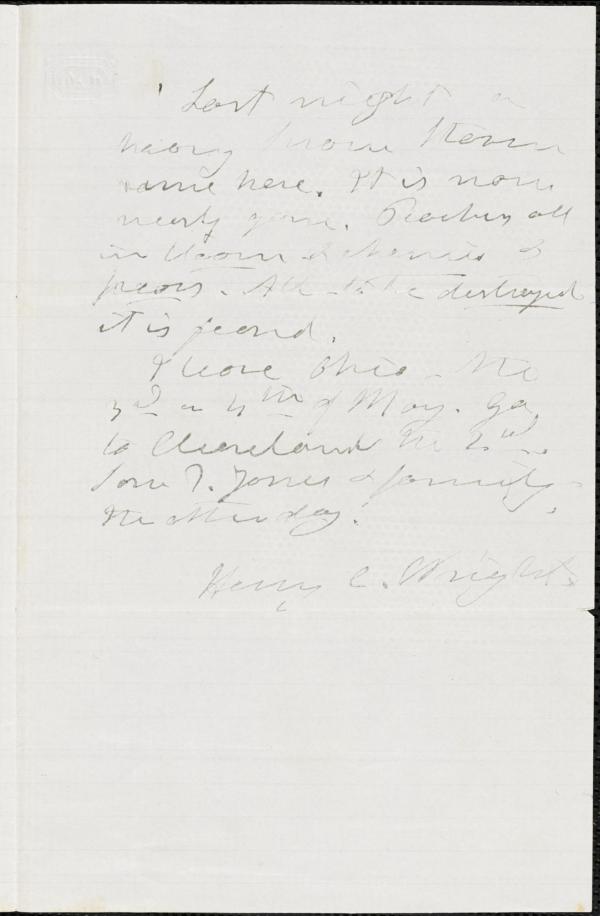 Last night a
heavy snow storm
came here. It is now
nearly gone. Peaches all
in bloom & cherries &
pears. All to be destroyed
it is feared.
I leave Ohio the
3rd or 4th of May. Go
to Cleveland the 2nd.
Saw J. Jones & family
the other day.
Henry C. Wright